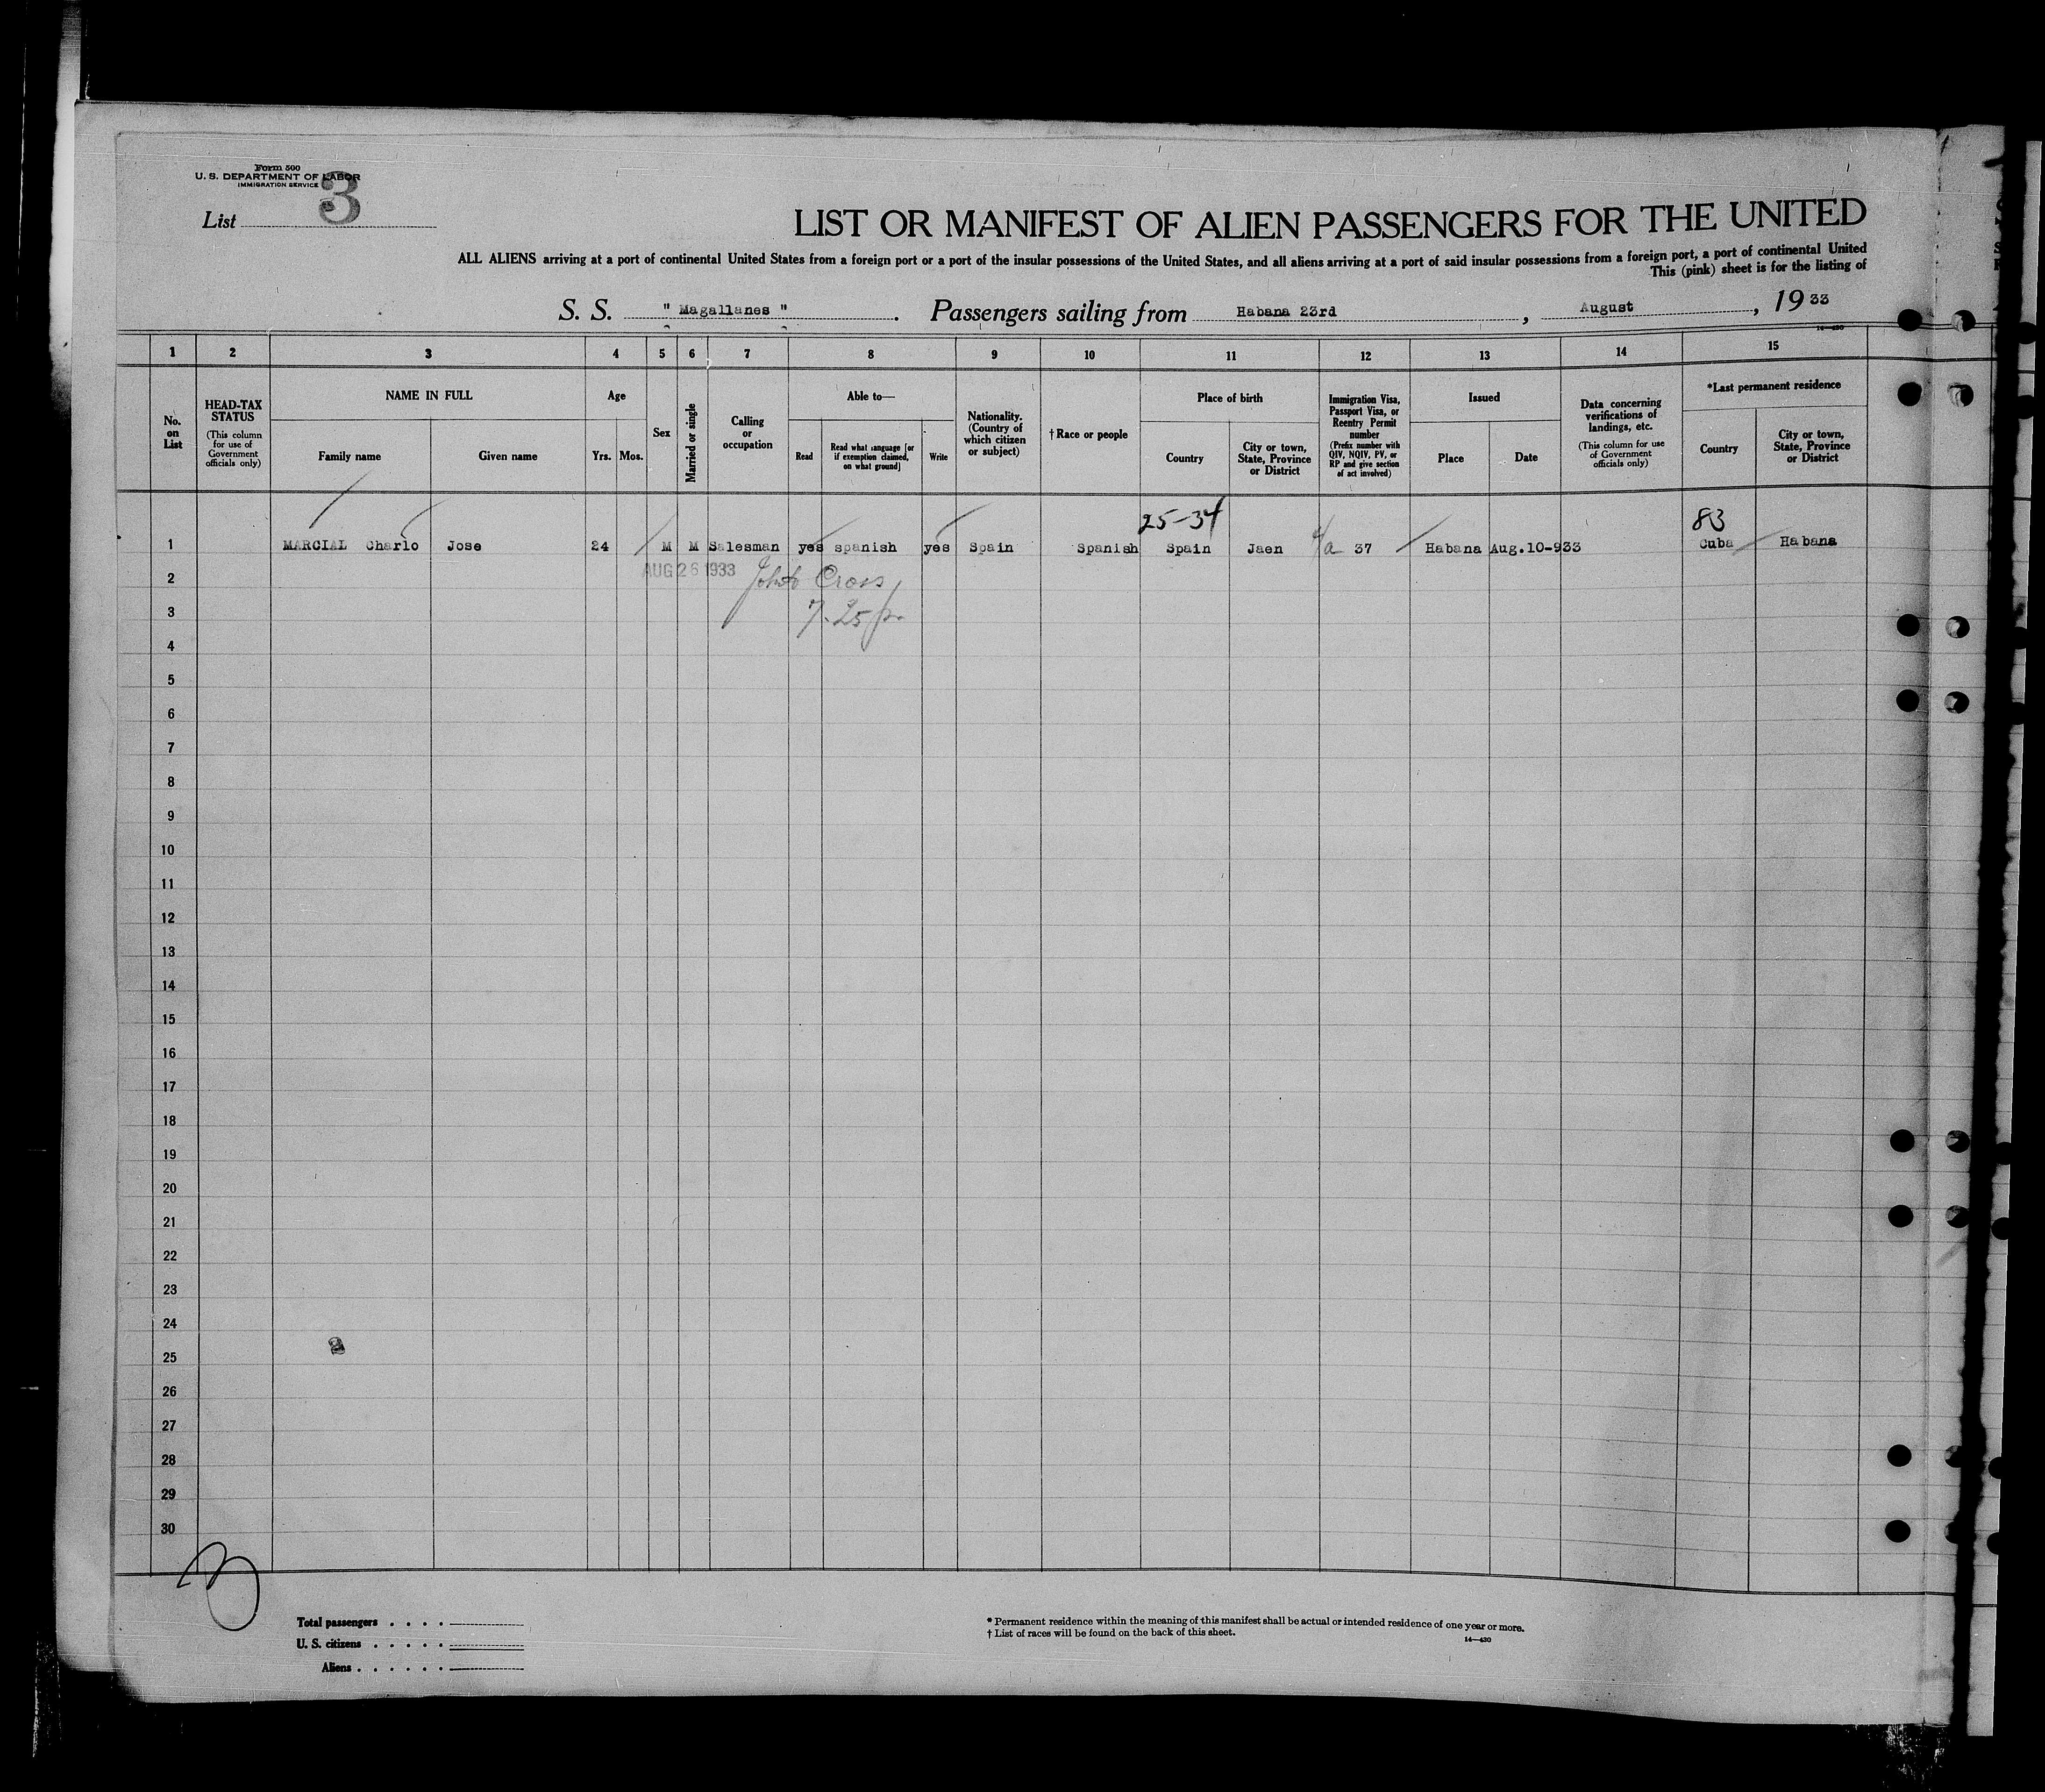 Form 500
U. S. DEPARTMENT OF LABOR
IMMIGRATION SERVICE
List 3
LIST OR MANIFEST OF ALIEN PASSENGERS FOR THE UNITED
ALL ALIENS arriving at a port of continental United States from a foreign port or a port of the insular possessions of the United States, and all aliens arriving at a port of said insular possessions from a foreign port, a port of continental United
This (pink) sheet is for the listing of
S. S. " Magallanes ". Passengers sailing from Habana 23rd, August, 19 33
14—430
1 2 3 4 5 6 7 8 9 10 11 12 13 14 15
No. on List
HEAD-TAX STATUS
(This column for use of Government officials only)
NAME IN FULL
Family name
Given name
Age
Yrs. Mos.
Sex
Married or single
Calling or occupation
Able to—
Read
Read what language [or if exemption claimed, on what ground]
Write
Nationality. (Country of which citizen or subject)
† Race or people
Place of birth
Country
City or town, State, Province or District
Immigration Visa, Passport Visa, or Reentry Permit number
(Prefix number with QIV, NQIV, PV, or RP and give section of act involved)
Issued
Place
Date
Data concerning verifications of landings, etc.
(This column for use of Government officials only)
*Last permanent residence
Country
City or town, State, Province or District
25-34
83
1 MARCIAL Charlo Jose 24 M M Salesman yes spanish yes Spain Spanish Spain Jaen 37 Habana Aug.10-933 Cuba Habana
AUG 26 1933
Cross
2
7.25 p.
3
4
5
6
7
8
9
10
11
12
13
14
15
16
17
18
19
20
21
22
23
24
25
26
27
28
29
30
Total passengers . . . .
U. S. citizens . . . . .
Aliens . . . . . .
* Permanent residence within the meaning of this manifest shall be actual or intended residence of one year or more.
† List of races will be found on the back of this sheet.
14—430